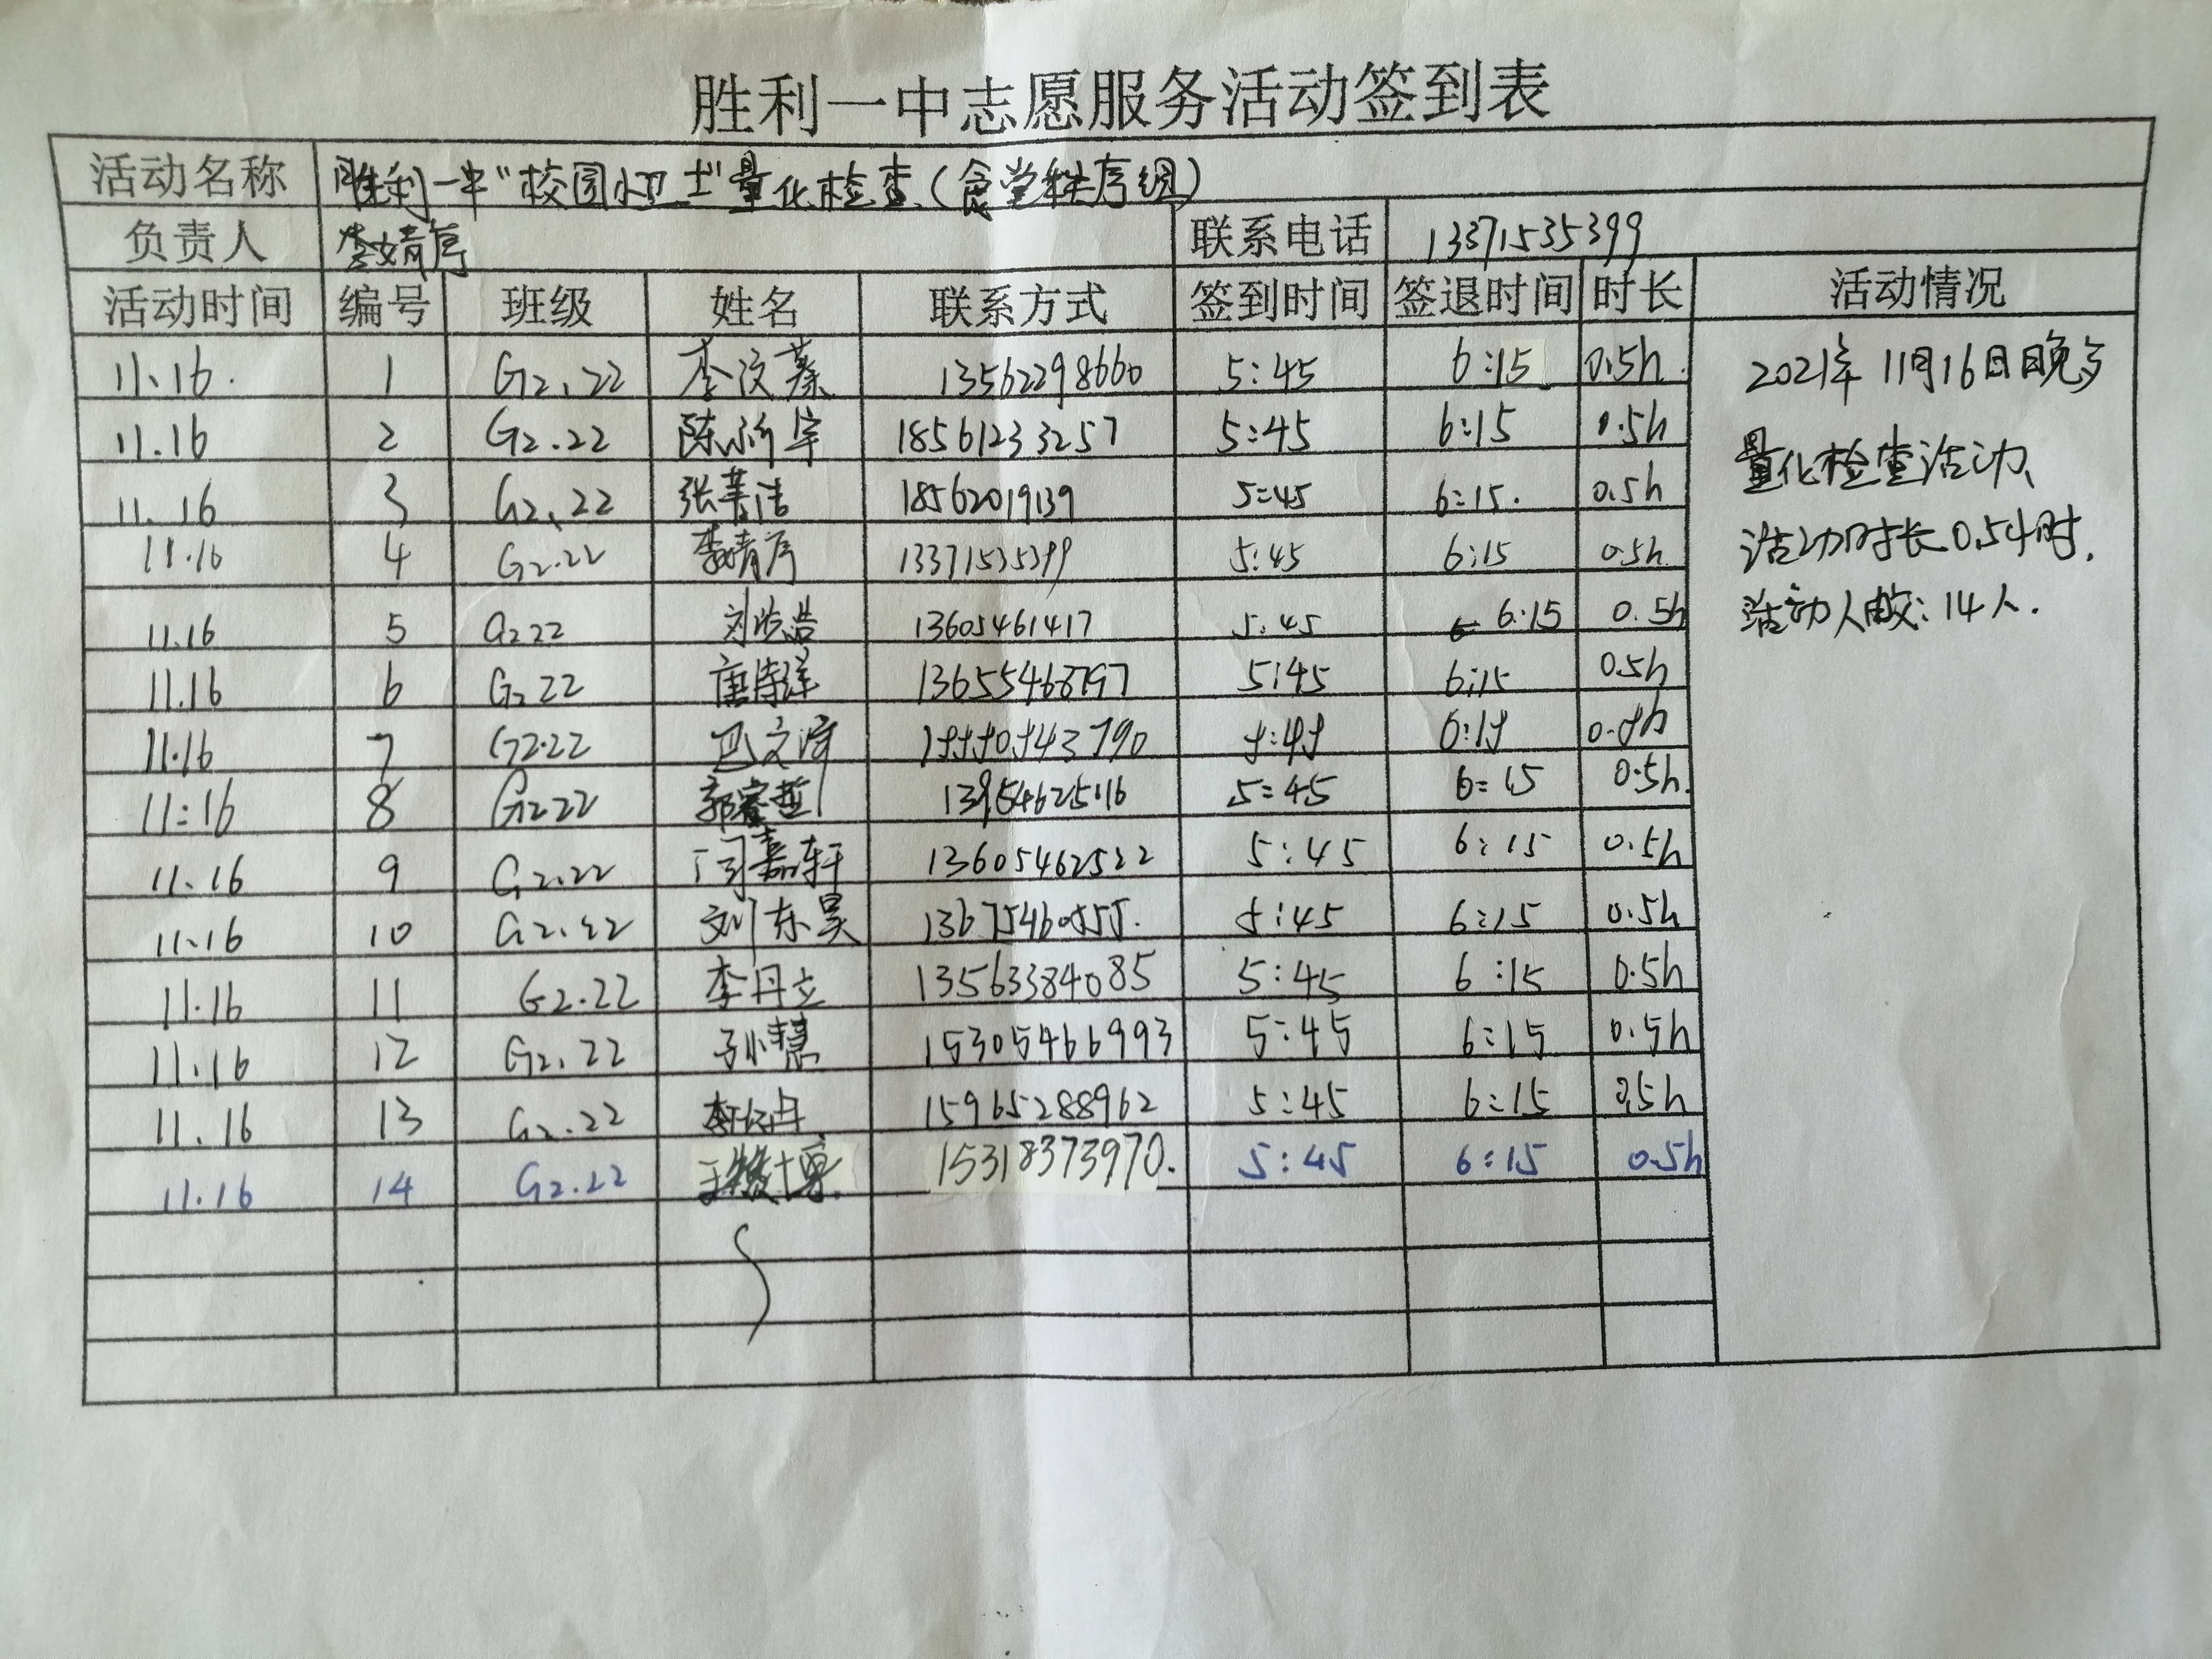 胜利一中志愿服务活动签到表
活动名称 胜利一中“校园小卫士”量化检查(食堂秩序组)
负责人 李婧序 联系电话 13371535399
活动时间 编号 班级 姓名 联系方式 签到时间 签退时间 时长 活动情况
11.16. 1 G2.22 李汶蓁 13562298660 5:45 6:15 0.5h.
2021年11月16日晚多
11.16 2 G2.22 陈昕宇 18561233257 5:45 6:15 0.5h
量化检查活动、
11.16 3 G2.22 18562019139 5:45 6:15. 0.5h
11.16 4 G2.22 李婧序 13371535399 5:45 6:15 0.5h
活动时长0.5小时.
11.16 5 G222 刘浩 13605461417 5:45 6:15 0.5h
活动人数:14人.
11.16 6 G2 22 唐诗洋 5:45 6:15 0.5h
11.16 7 G2.22 巴文 15550543790 5:45 6:15 0.5h
11:16 8 G222 郭睿哲 13954625116 5:45 6:15 0.5h.
11.16 9 G2.22 闫嘉轩 13605462522 5:45 6:15 0.5h
11.16 10 G2.22 刘东昊 13675460555. 5:45 6:15 0.5h
11.16 11 G2.22 李丹立 13563384085 5:45 6:15 0.5h
11.16 12 G2.22 孙慧 15305466993 5:45 6:15 0.5h
11.16 13 G2.22 15965288962 5:45 6:15 0.5h
11.16 14 G2.22 15318373970. 5:45 6:15 0.5h